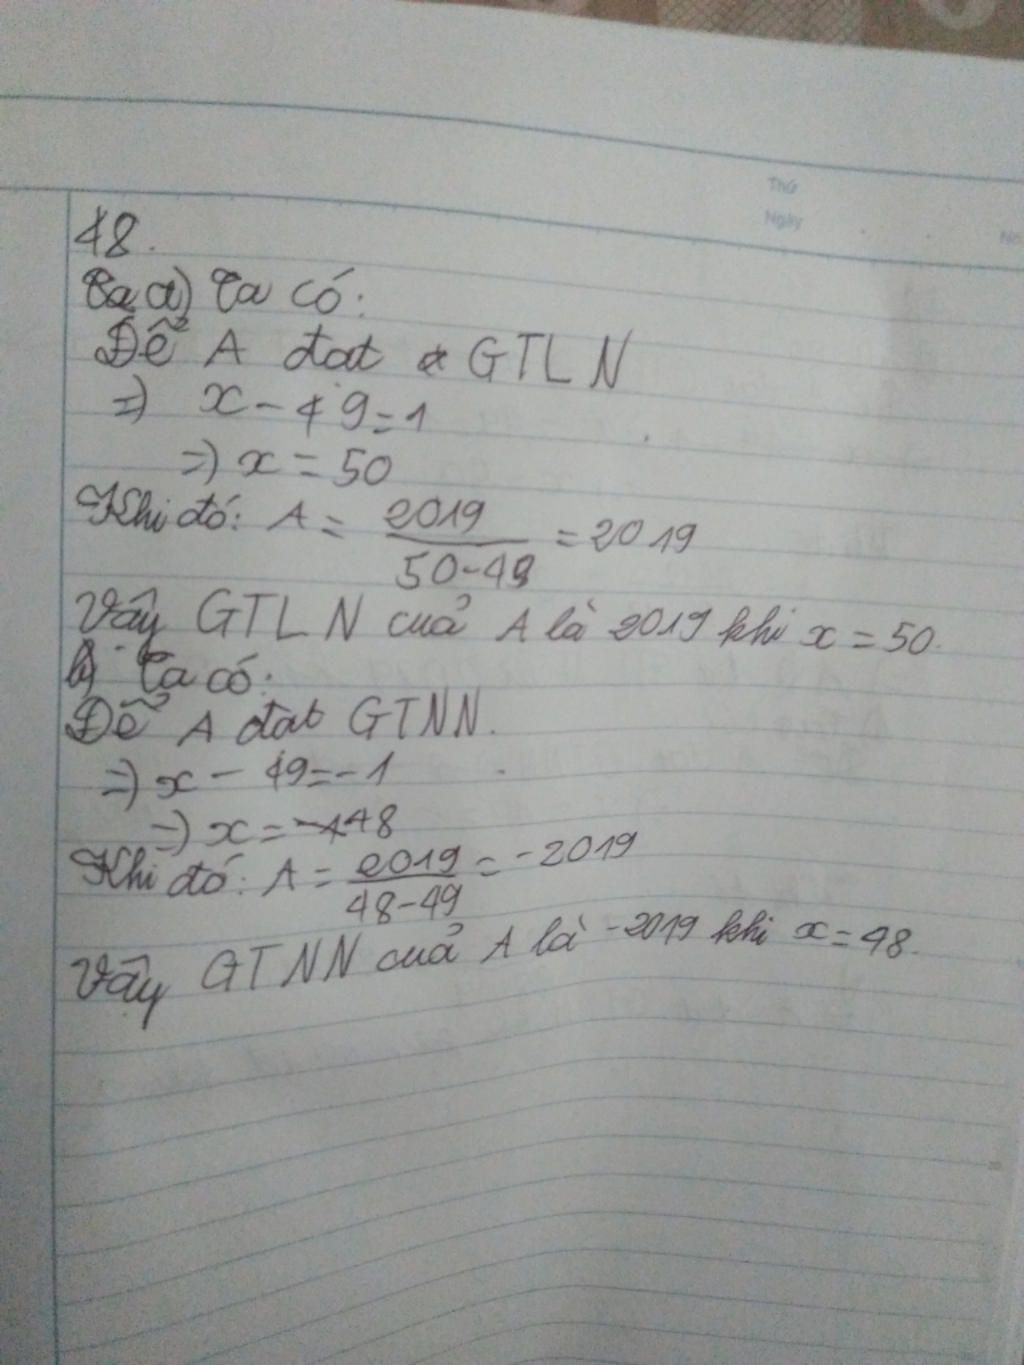 Thứ
Ngày
No
48.
Ta a) Ta có:
Để A đat GTLN
=) x - 49 = 1
=) x = 50
Khi đó: A = 2019 / 50-49 = 2019
Vây GTLN cuả A là 2019 khi x = 50.
b) Ta có:
Để A đat GTNN.
=) x - 49 = -1
=) x = 48
Khi đó: A = 2019 / 48-49 = -2019
Vây GTNN cuả A là -2019 khi x = 48.